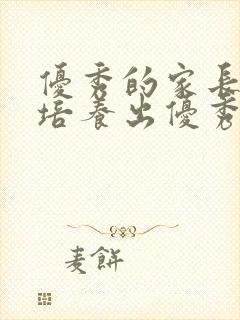 優秀的家長
培養出優秀
麦餅